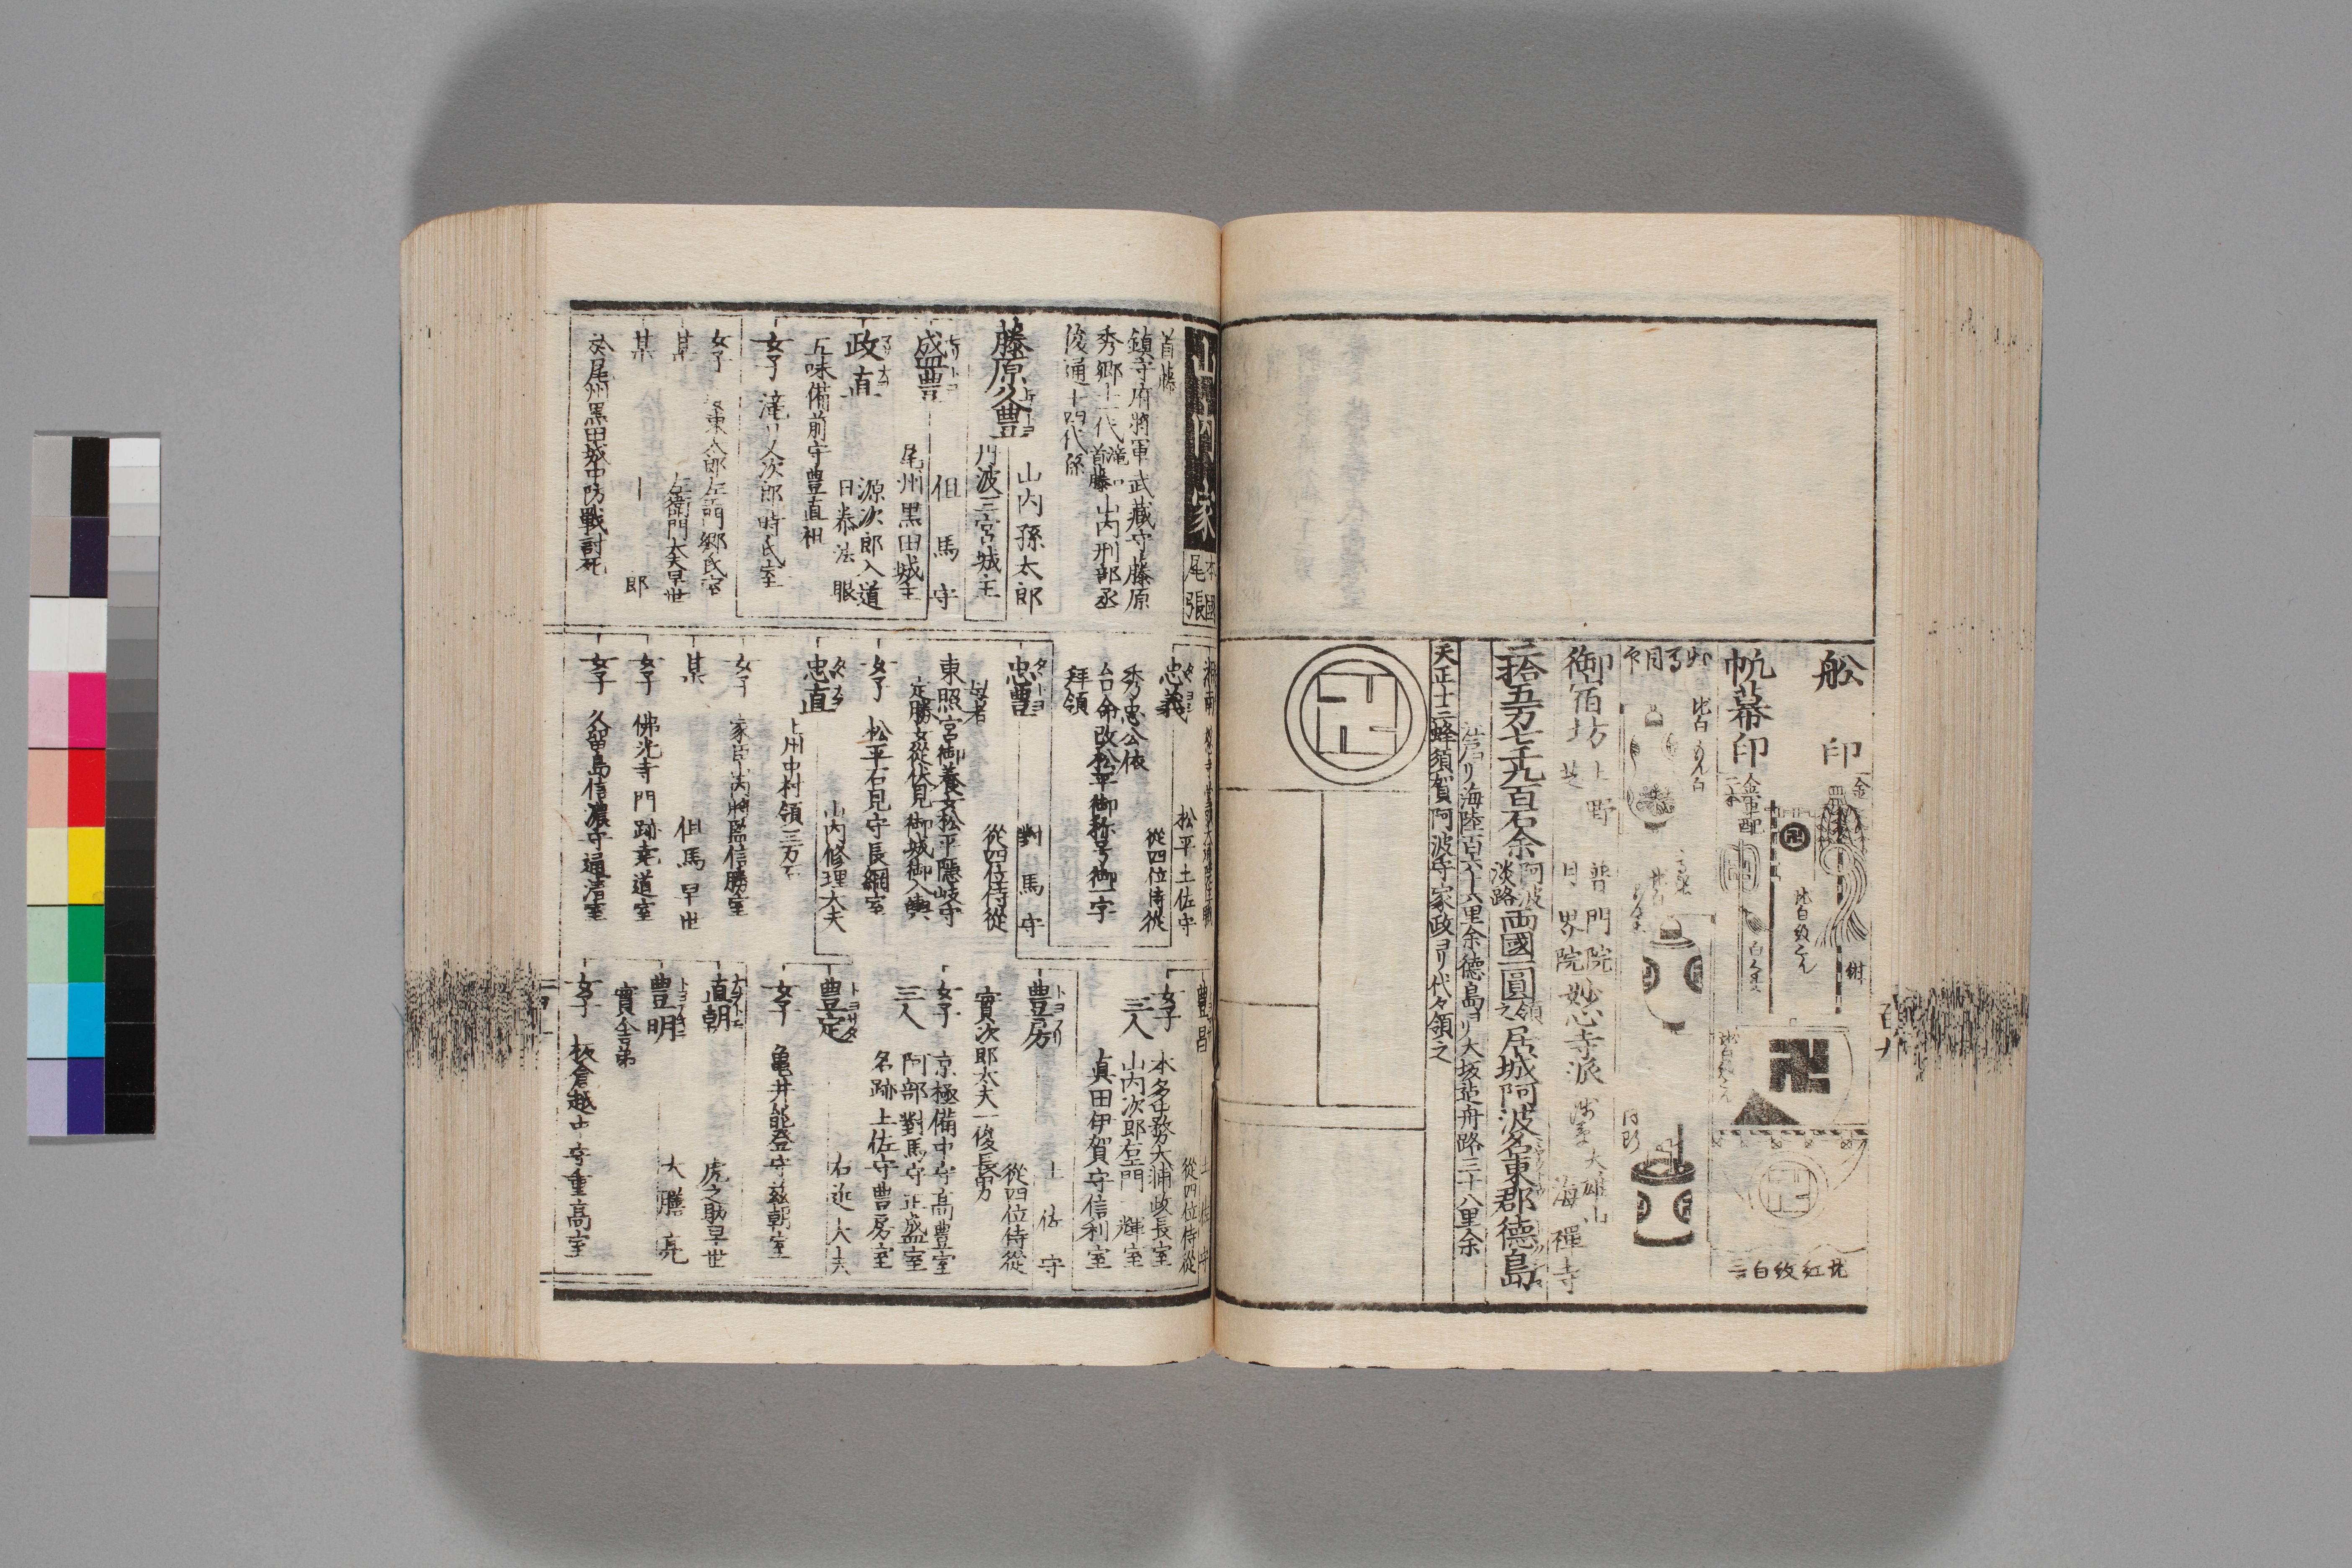 舩印
金
紺
帆幕印
金軍配
二本
地白紋こん
地紅紋白
御宿坊
上野
普門院
芝
妙心寺派
大雄山
海禪寺
二拾五万七千九百石余
阿波
淡路
両國一圓領之
居城阿波名東郡德島
江戸ヨリ海陸百六十六里余德島ヨリ大坂迠舟路三十八里余
天正十三蜂須賀阿波守家政ヨリ代々領之
山内家
本國
尾張
首藤
鎮守府將軍武藏守藤原
秀郷十一代
滝口
首藤
山内刑部丞
俊通十四代孫
藤原久豊
山内孫太郎
丹波三宮城主
盛豊
但馬守
尾州黒田城主
政直
源次郎入道
日恭法眼
五味備前守豊直祖
女子
滝川又次郎時氏室
女子
安東太郎左門郷氏室
某
左衛門大夫早世
某
十郎
於尾州黒田城中防戰討死
忠義
松平土佐守
從四位侍從
秀忠公依
台命改松平御称号御一字
拝領
忠豊
對馬守
從四位侍從
母者
東照宮御養女松平隱岐守
定勝女從伏見御城御入輿
女子
松平石見守長綱室
忠直
山内修理大夫
土州中村領三万石
女子
家臣山内將監信勝室
某
但馬早世
女子
佛光寺門跡堯道室
女子
久留島信濃守通清室
豊昌
土佐守
從四位侍從
女子
三人
本多中務大浦政長室
山内次郎左門一輝室
真田伊賀守信利室
豊房
土佐守
從四位侍從
實次郎太夫一俊長男
女子
三人
京極備中守高豊室
阿部對馬守正盛室
名跡土佐守豊房室
豊定
右近大夫
女子
亀井能登守茲朝室
直朝
虎之助早世
豊明
大膳亮
實舎弟
女子
板倉越中守重高室